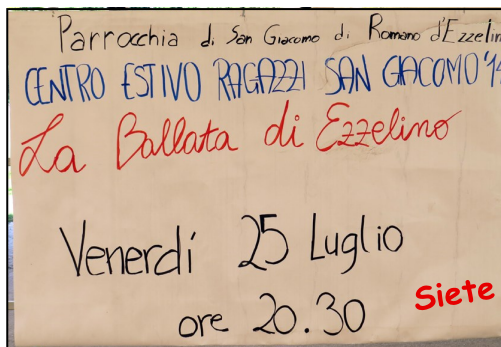 Parrocchia di San Giacomo di Romano d'Ezzelin
CENTRO ESTIVO RAGAZZI SAN GIACOMO '14
La Ballata di Ezzelino
Venerdí 25 Luglio
ore 20.30
Siete